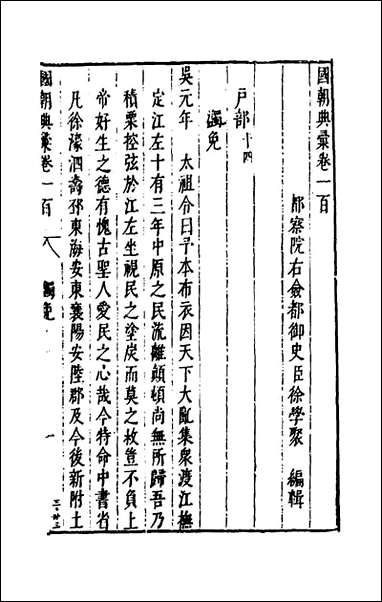 國朝典彙卷一百
都察院右僉都御史臣徐學聚 編輯
戶部十四
蠲免
吳元年 太祖令曰予本布衣因天下大亂集衆渡江撫
定江左十有三年中原之民流離顛頓尚無所歸吾乃
積粟控弦於江左坐視民之塗炭而莫之救豈不負上
帝好生之德有愧古聖人愛民之心哉今特命中書省
凡徐濠泗壽邳東海安東襄陽安陸郡及今後新附土
國朝典彙卷一百 蠲免 一